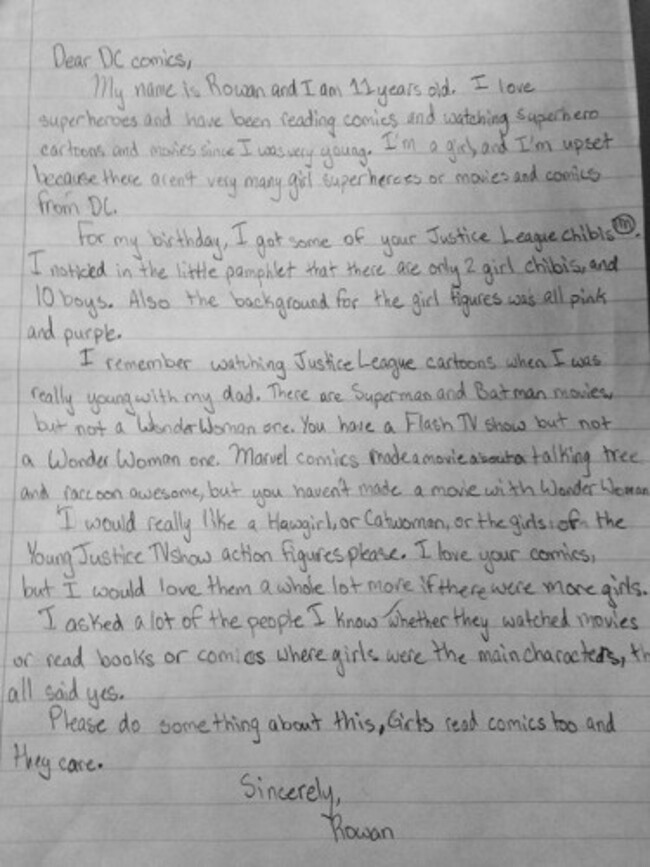 Dear DC comics,
My name is Rowan and I am 11 years old. I love
superheroes and have been reading comics and watching superhero
cartoons and movies since I was very young. I'm a girl, and I'm upset
because there aren't very many girl superheroes or movies and comics
from DC.
For my birthday, I got some of your Justice League chibis™.
I noticed in the little pamphlet that there are only 2 girl chibis, and
10 boys. Also the background for the girl figures was all pink
and purple.
I remember watching Justice League cartoons when I was
really young with my dad. There are Superman and Batman movies,
but not a Wonder Woman one. You have a Flash TV show but not
a Wonder Woman one. Marvel comics made a movie about a talking tree
and raccoon awesome, but you haven't made a movie with Wonder Woman
I would really like a Hawgirl, or Catwoman, or the girls of the
Young Justice TV show action figures please. I love your comics,
but I would love them a whole lot more if there were more girls.
I asked a lot of the people I know whether they watched movies
or read books or comics where girls were the main characters, th
all said yes.
Please do something about this, Girls read comics too and
they care.
Sincerely,
Rowan